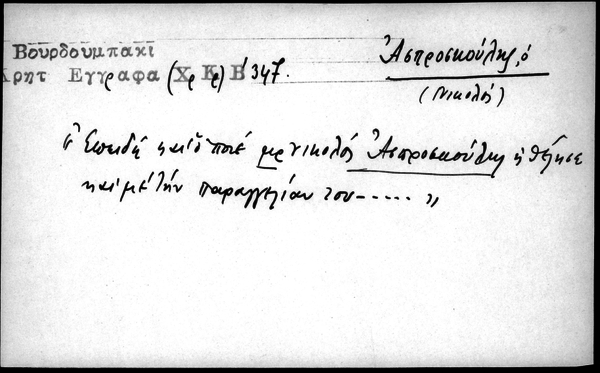 Βουρδουμπακι
Κρητ Εγγραφα (Χρ Κρ) Β 347.
Ἀσπροσκούλης, ὁ
(Νικολός)
«Ἐπειδὴ καὶ ὁ ποτέ μρ νικολός Ἀσπροσκούλης ἠθέλησε
καὶ μὲ τὴν παραγγελίαν του ----- »